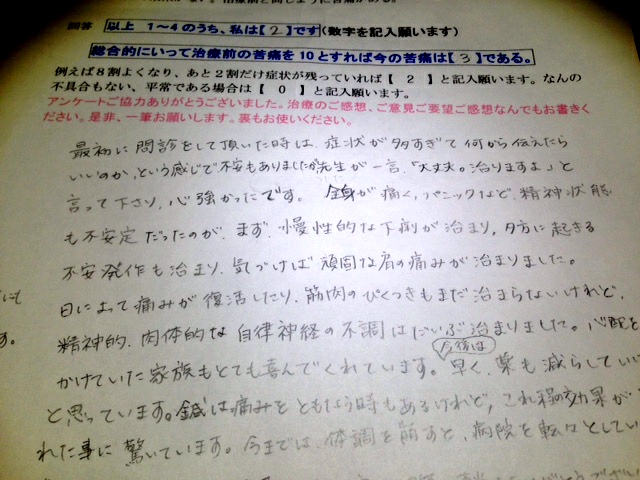 回答 以上 1〜4のうち、私は【 2 】です(数字を記入願います)
総合的にいって治療前の苦痛を10とすれば今の苦痛は【 3 】である。
例えば8割よくなり、あと2割だけ症状が残っていれば【 2 】と記入願います。なんの
不具合もない、平常である場合は【 0 】と記入願います。
アンケートご協力ありがとうございました。治療のご感想、ご意見ご要望ご感想なんでもお書きく
ださい。是非、一筆お願いします。裏もお使いください。
最初に問診をして頂いた時は、症状が多すぎて何から伝えたら
いいのか、という感じで不安もありましたが先生が一言、「大丈夫。治りますよ」と
言って下さり、心強かったです。全身が痛く、パニックなど、精神状態
も不安定だったのが、まず、慢性的な下痢が治まり、夕方に起きる
不安発作も治まり、気づけば頑固な肩の痛みが治まりました。
日によって痛みが復活したり、筋肉のぴくつきもまだ治まらないけれど、
精神的、肉体的な自律神経の不調はだいぶ治まりました。心配を
かけていた家族もとても喜んでくれています。今後は早く、薬も減らしてい
と思っています。鍼は痛みをともなう時もあるけれど、これ程の効果が
れた事に驚いています。今までは、体調を崩すと、病院を転々としてい